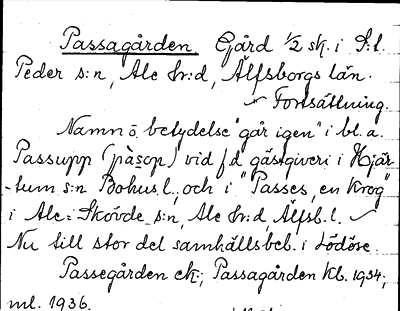 Passagården Gård ½ sk. i S:t.
Peder s:n, Ale hr:d, Älfsborgs län.
~ Fortsättning.
Namn o. betydelse "går igen" i bl. a.
Passupp (pàsop) vid f d gästgiveri i Hjär
-tum s:n Bohus l., och i "Passes, en krog"
i Ale-Skövde s:n, Ale hr:d, Älfsb. l. ~
Nu till stor del samhällsbeb. i Lödöse.
Passegården ek:, Passagården kb. 1934;
ml. 1936.